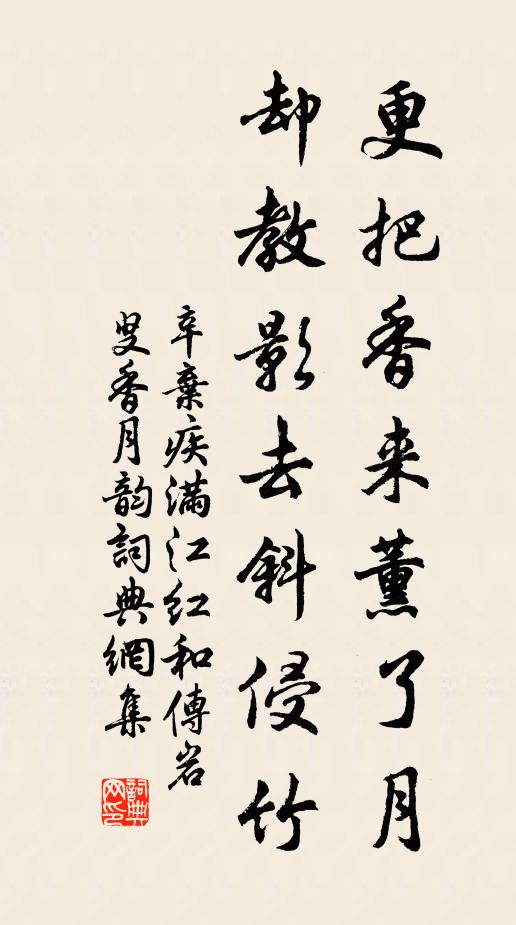 更把香来薰了月
却教影去斜侵竹
辛棄疾满江红和傅岩
叟香月韵詞典網集
詞典
网印